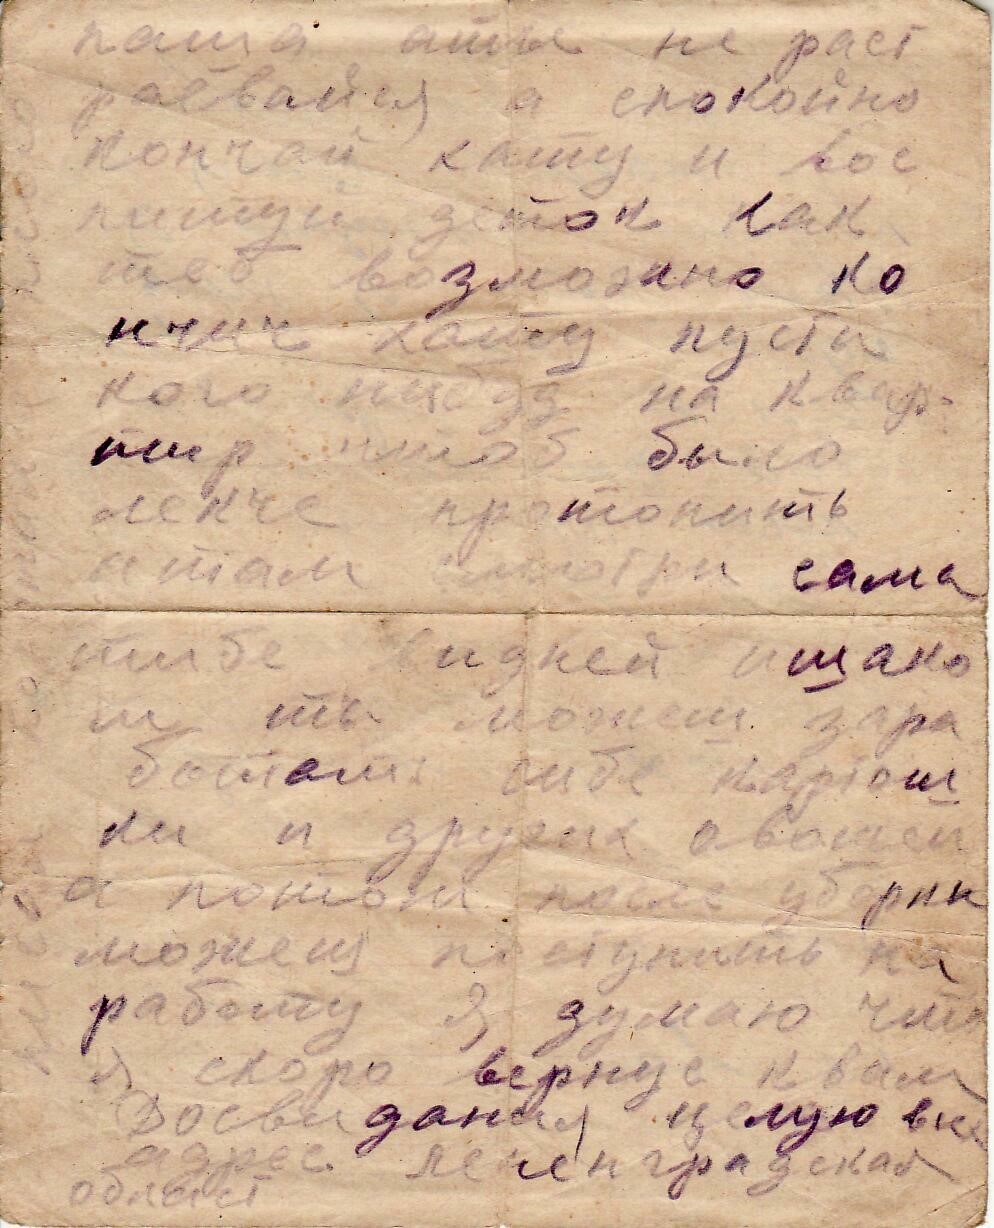 паша атье не раст
раевайся а спокойно
кончай хату и вос
питуй деток как
теб возможно ко
нчич хату пусти
кого нибудь на квар-
тир чтоб было
лекче протопить
а там смотри сама
тибе видней ищако
ты можеш зара
ботать сибе картош
ки и других овощей
а потом после уборки
можеш поступить на
работу я думаю что
я скоро вернус к вам
Досвидания целую вас
адрес Ленинградская
област